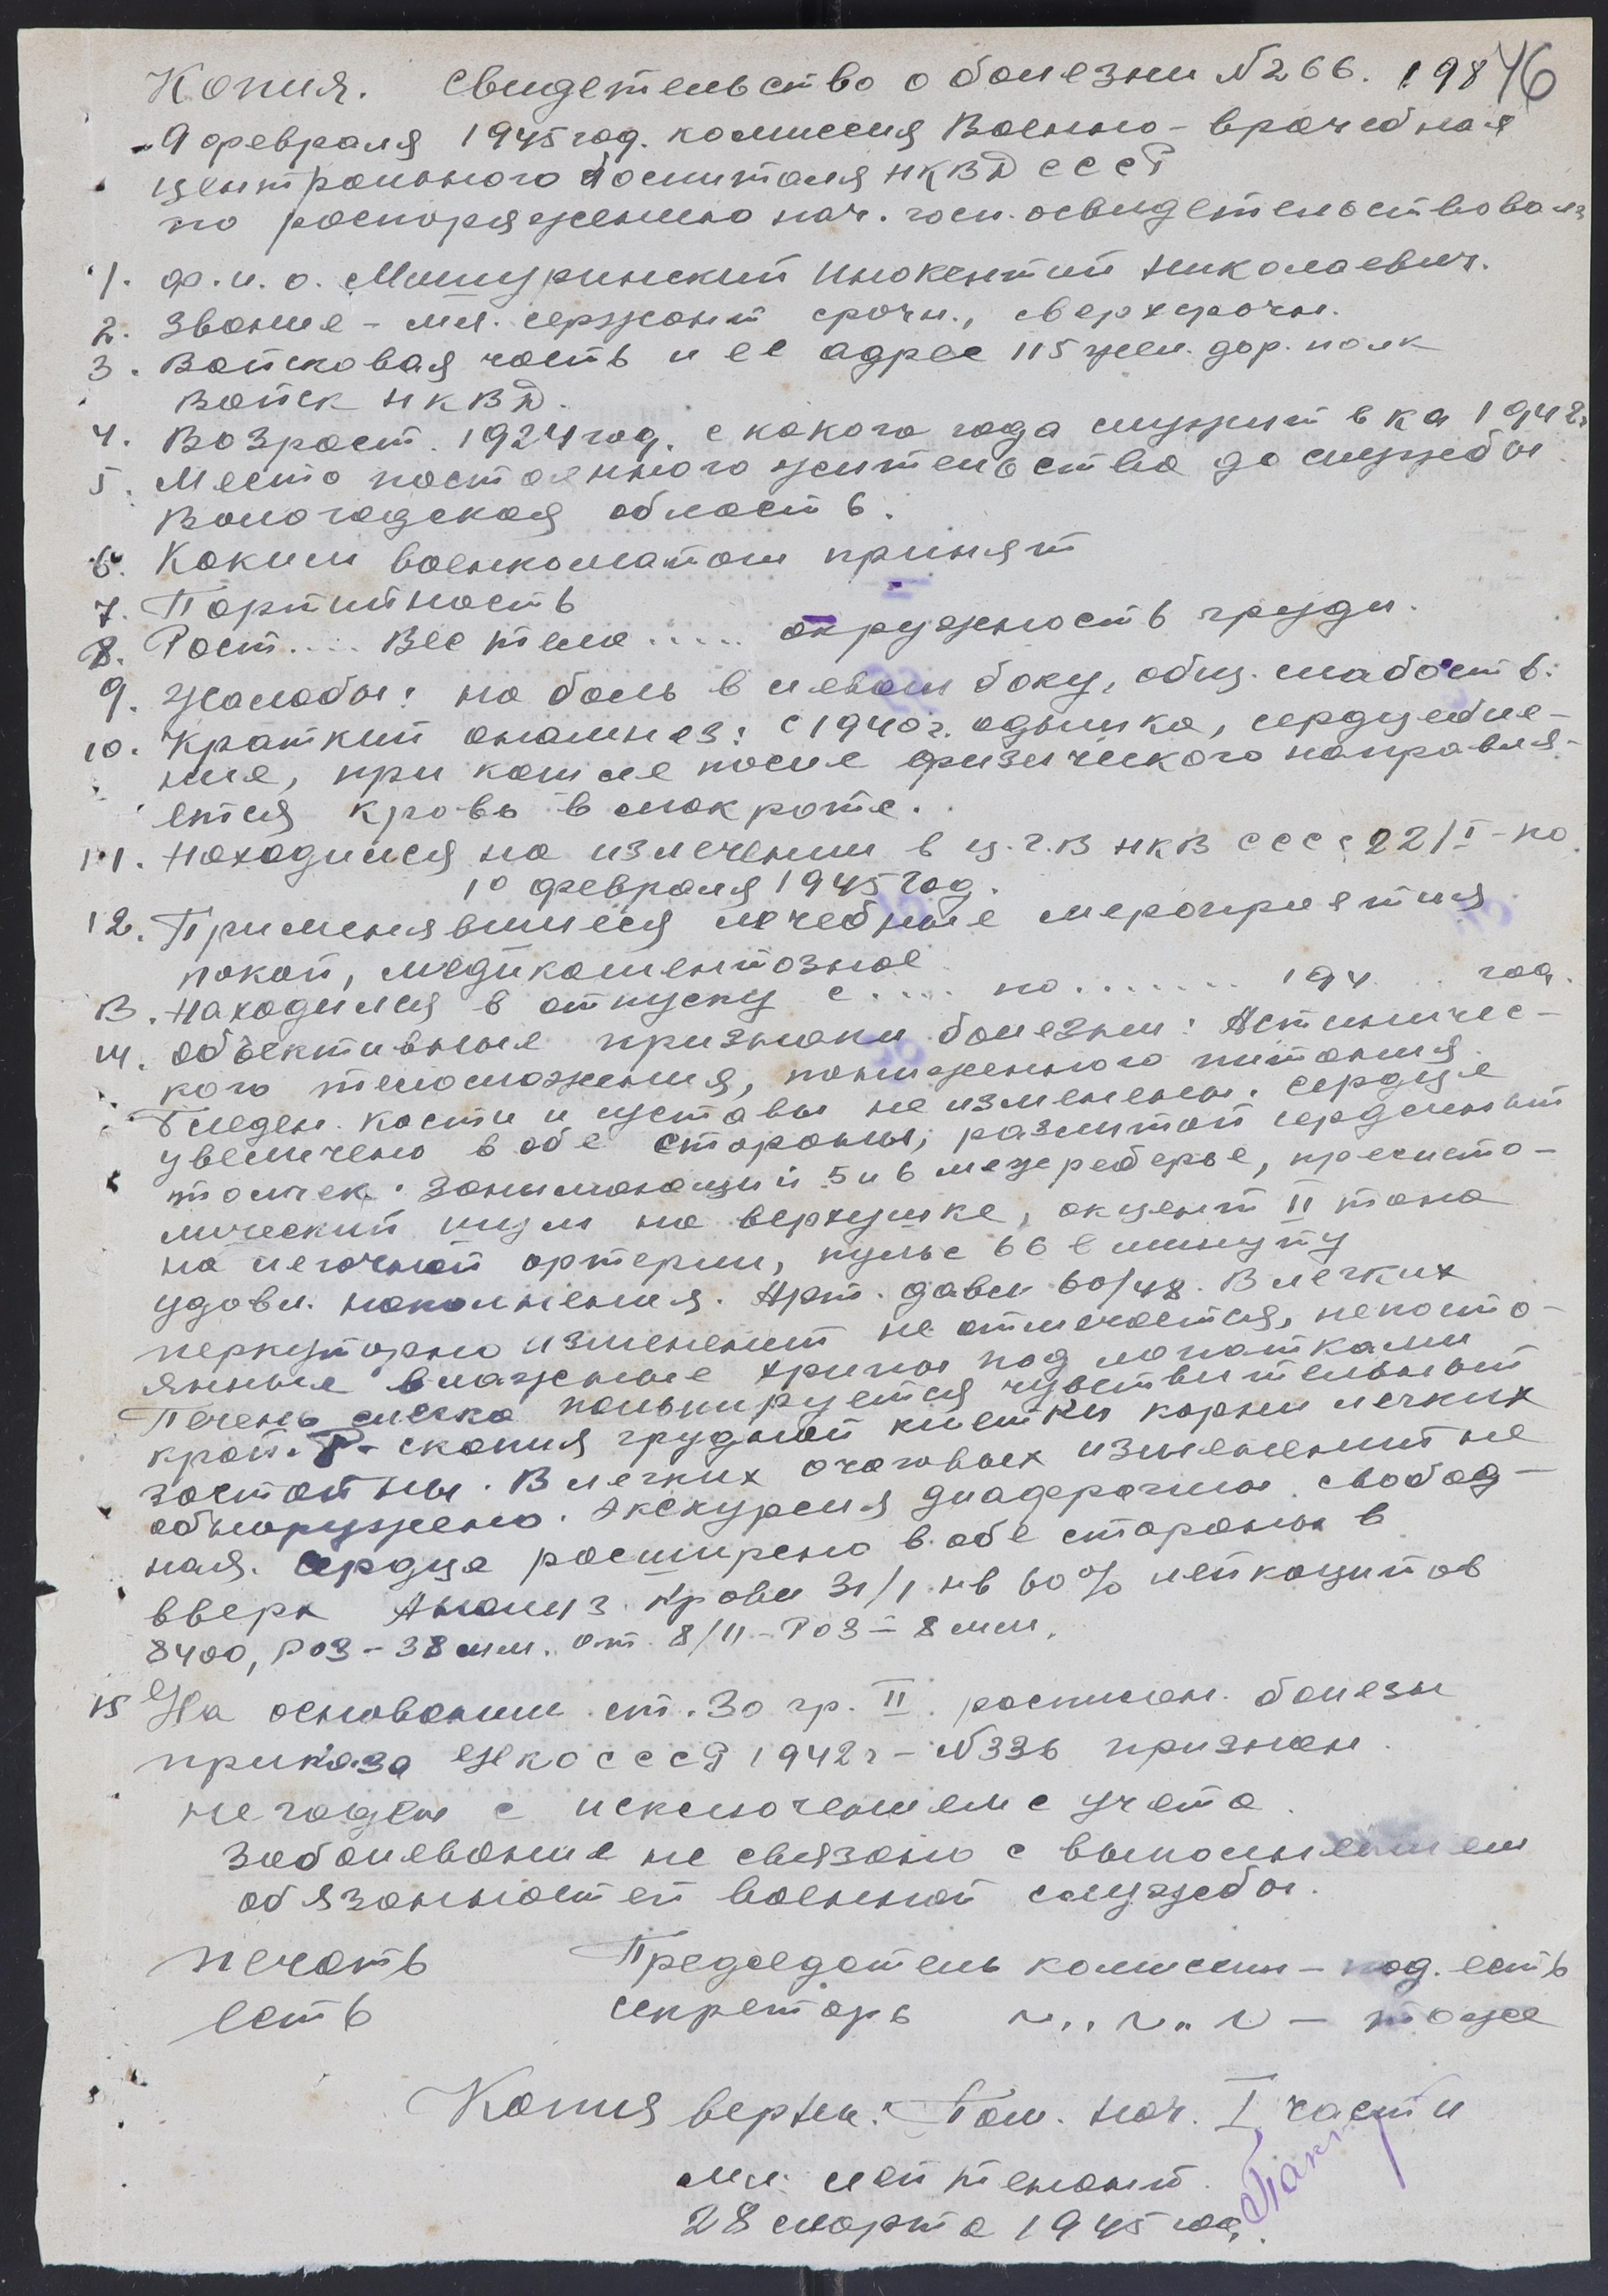 Копия. Свидетельство о болезни N 266. 198 46
9 февраля 1945 год. комиссия Военно-врачебная
центрального госпиталя НКВД СССР
по распоряжению нач. госп. освидетельствовал
1. ф.и.о. Мишуринский Инокентий Николаевич.
2. Звание - мл. сержант срочн., сверхсрочн.
3. Войсковая часть и ее адрес 115 жел. дор. полк
войск НКВД.
4. Возраст 1924 год. с какого года служит в КА 1942г
5. Место постоянного жительства до службы
Вологодская область.
6. Каким военкоматом принят
7. Партийность
8. Рост.... Вес тела..... окружность груди.
9. Жалобы: на боль в левом боку, общ. слабость.
10. Краткий анамнез: с 1940 г. одышка, сердцебие-
ние, при кашле после физического направля-
ется кровь в мокроте.
11. Находился на излечении в ц.г.В НКВ СССС 22/I - по
10 февраля 1945 год.
12. Применявшиеся лечебные мероприятия
покой, медикаментозное
13. Находился в отпуску с.... по....... 194... год.
14. Объективные признаки болезни: Астиничес-
кого телосложения, пониженного питания.
Бледен. Кости и суставы не изменены. Сердце
увеличено в обе стороны, разлитой сердечный
толчек. Занимающий 5 и 6 межреберье, пресисто-
лический шум на верхушке, акцент II тона
на легочной артерии, пульс 66 в минуту
удовл. наполнения. Арт. давл 60/48. В легких
перкуторно изменений не отмечается, непосто-
янные влажные хрипы под лопатками
Печень слегка пальпируется чувствительный
край. Р-скопия грудной клетки корни легких
застойны. В легких очаговых изменений не
обнаружено. Экскурсия диафрагмы свобод-
ная. Сердце расширено в обе стороны в
вверх Анализ крови 31/1 нв 60% лейкоцитов
8400, РОЭ - 38 мм. от 8/II - РОЭ - 8 мм.
15 На основании ст. 30 гр. II расписан. болезн
приказа НКО СССР 1942 г - N 336 признан
не годен с исключением с учета.
Заболевание не связано с выполнением
обязанностей военной службы.
печать Председатель комиссии - под. есть
есть секретарь ~ „ ~ „ ~ - тоже
Копия верна: Пом. нач. I части
мл. лейтенант
28 марта 1945 год.